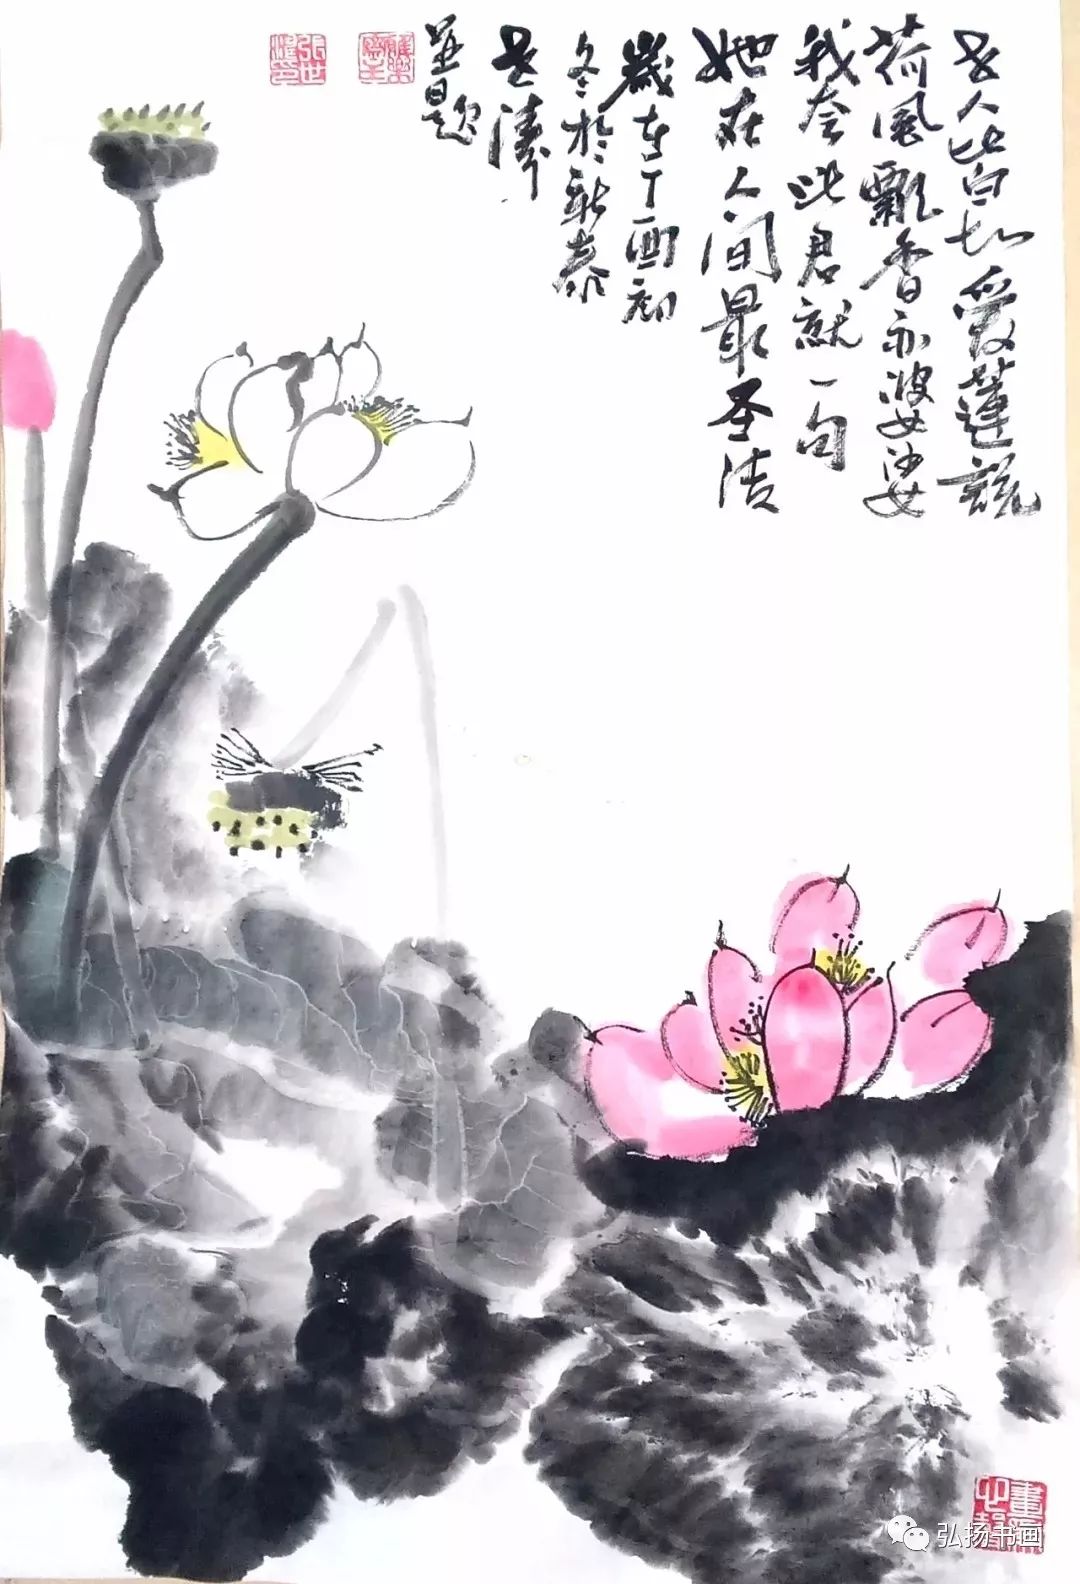 世人皆知爱莲说
荷风飘香亦婆娑
我念此君就一句
她在人间最圣洁
岁在丁酉初
冬於新泰
世涛
并题
张世涛印
弘扬书画